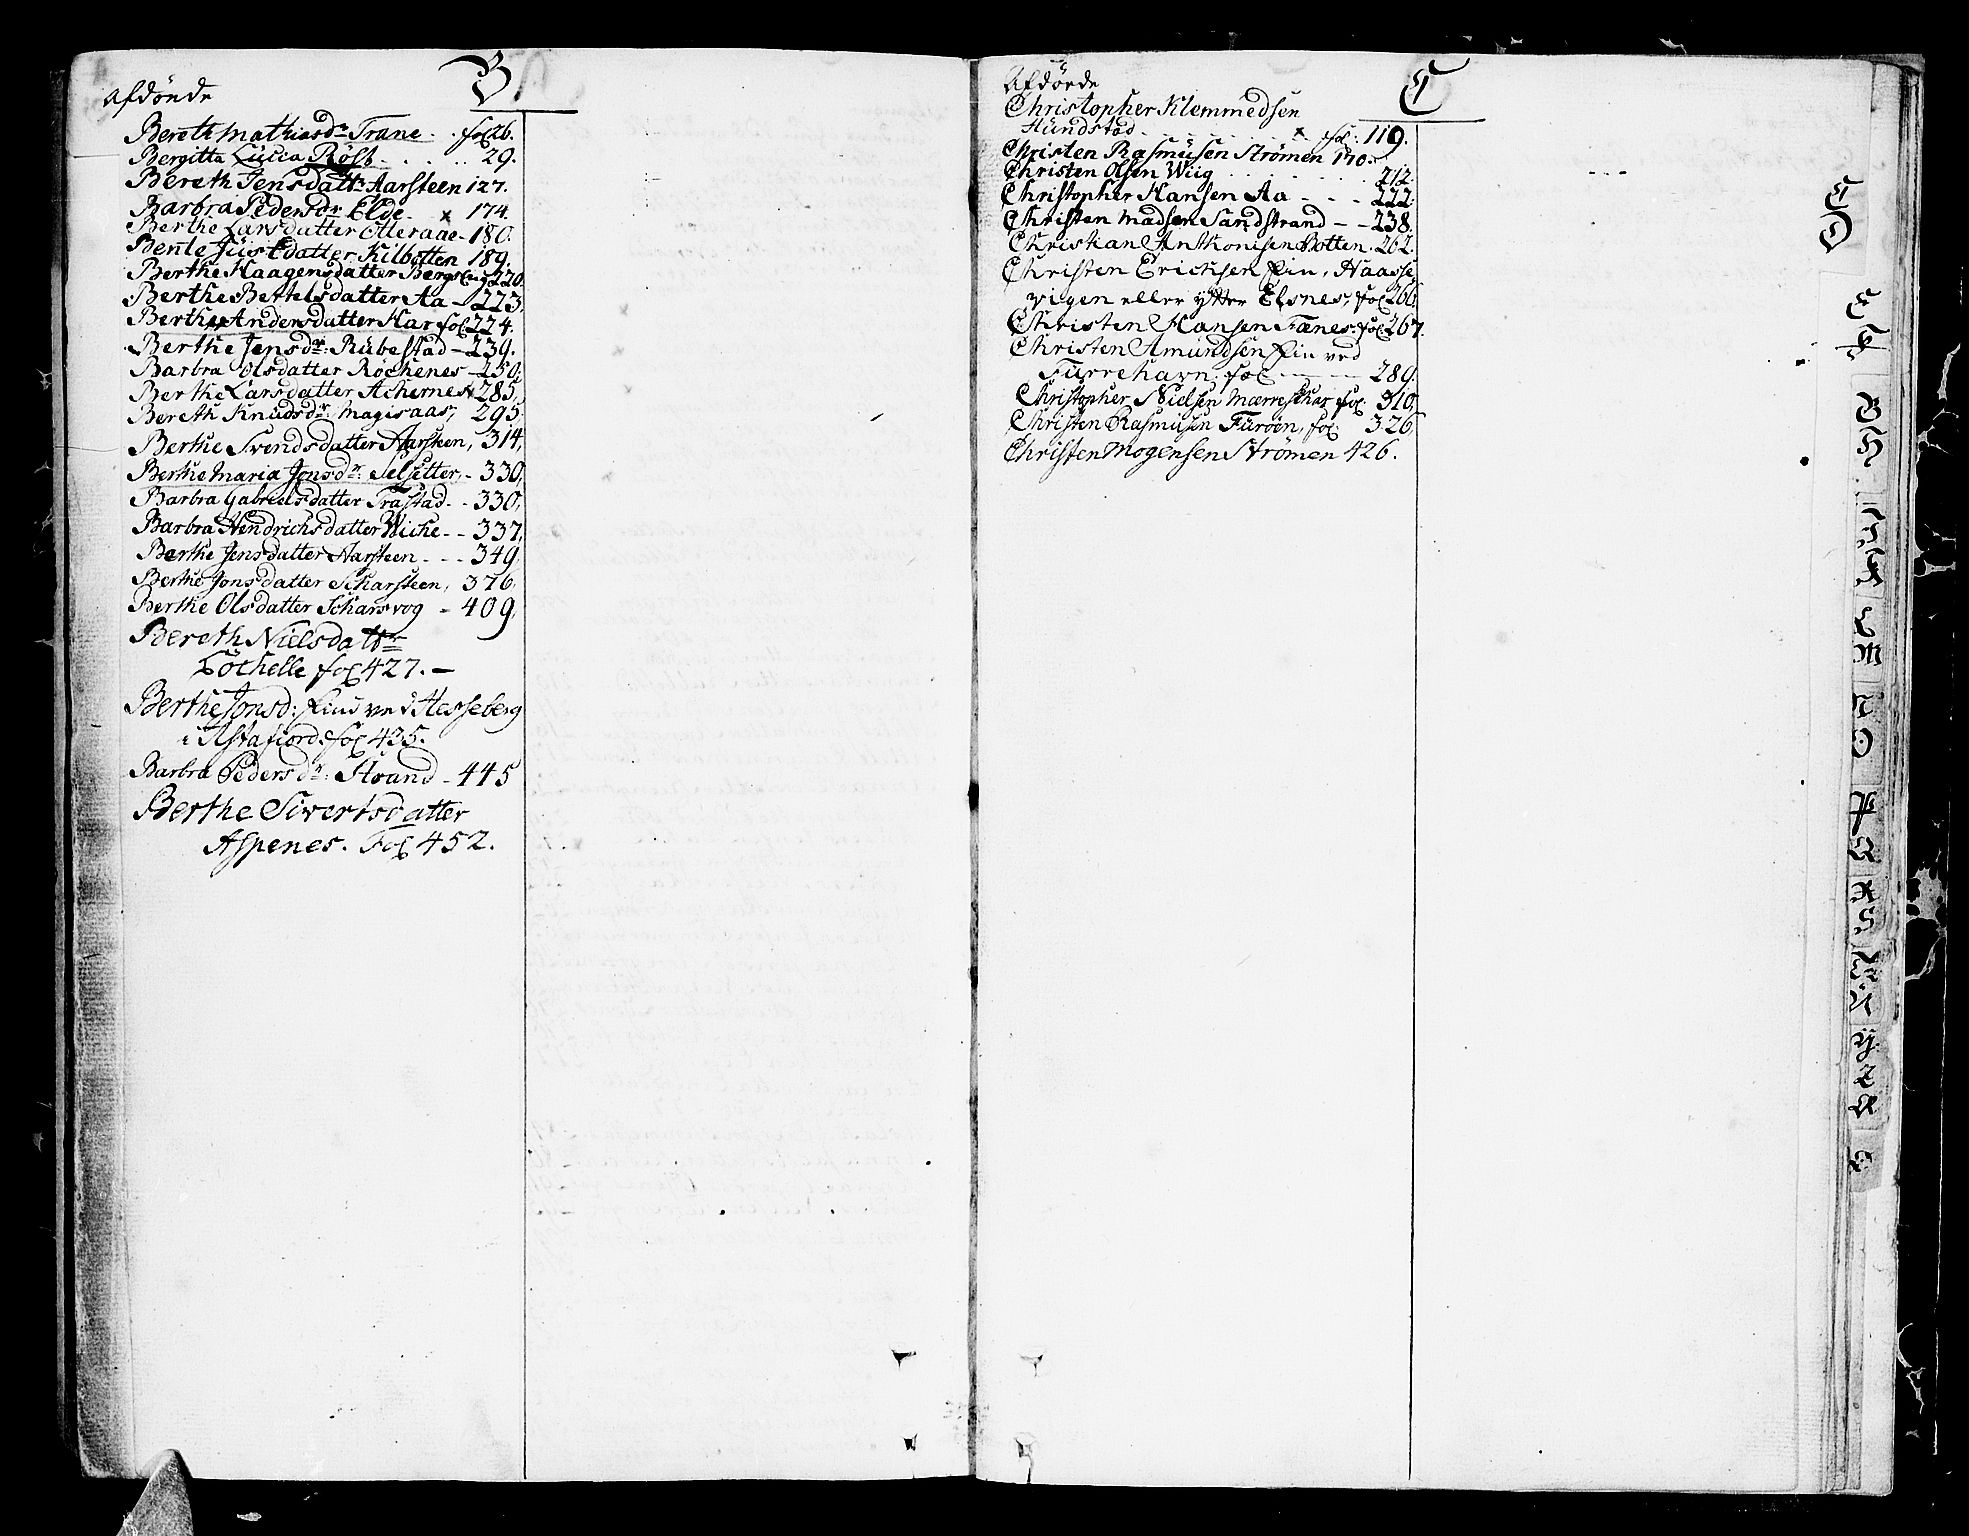 B
Afdöde
Bereth Mathiasdr Trane - . fol 26.
Bergitta Lucca Röst - . . . . 29.
Bereth Jensdattr Aarsteen 127.
Barbra Pedersdr Elde - x 174.
Berthe Larsdatter Otteraae - 180.
Bente Justdatter Kilbotten 189.
Berthe Haagensdatter Bergs Eng 220.
Berthe Bertelsdatter Aa - 223,
Berthe Andersdatter Har fol 224.
Berthe Jensdr: Rubestad - 239.
Barbra Olsdatter Röchenes - 250.
Berthe Larsdatter Achernes 285,
Bereth Knudsdr: Magisaas, 295.
Berthe Svendsdatter Aarsteen, 314,
Berthe Maria Jonsdr: Selsetter, - 330,
Barbra Gabrielsdatter Trastad - - 330,
Barbra Hendrichsdatter Wiche - - 337,
Berthe Jensdatter Aarsteen - - - 349,
Berthe Jonsdatter Scharsteen, 376,
Berthe Olsdatter Scharsvog - 409,
Bereth Nielsdattr
Löchelle fol 427. -
Berthe Jonsd: Find ved Hesseberg
i Astafiord: fol 435.
Barbra Pedersdr: Strand - 445
Berthe Sivertsdatter
Aspenes. Fol 452.
C
Afdöde
Christopher Klemmedsen
Hundstad . . . . x fol: 119.
Christen Rasmusen Strömen 170.
Christen Olsen Wiig . . . . . . . 212.
Christopher Hansen Aa - - - 222.
Christen Madsen Sandstrand - - 238.
Christian Anthonisen Botten . 262.
Christen Erichsen Fin, Haasse
vigen eller ytter Elsnes, fol 266,
Christen Hansen Fænes: fol 267.
Christen Amundsen Fin ved
Furrehavn: fol - - - - 289.
Christopher Nielsen Mærreschar fol: 310,
Christen Rasmusen Furöen, fol: 326,
Christen Mogensen Strömen 426.